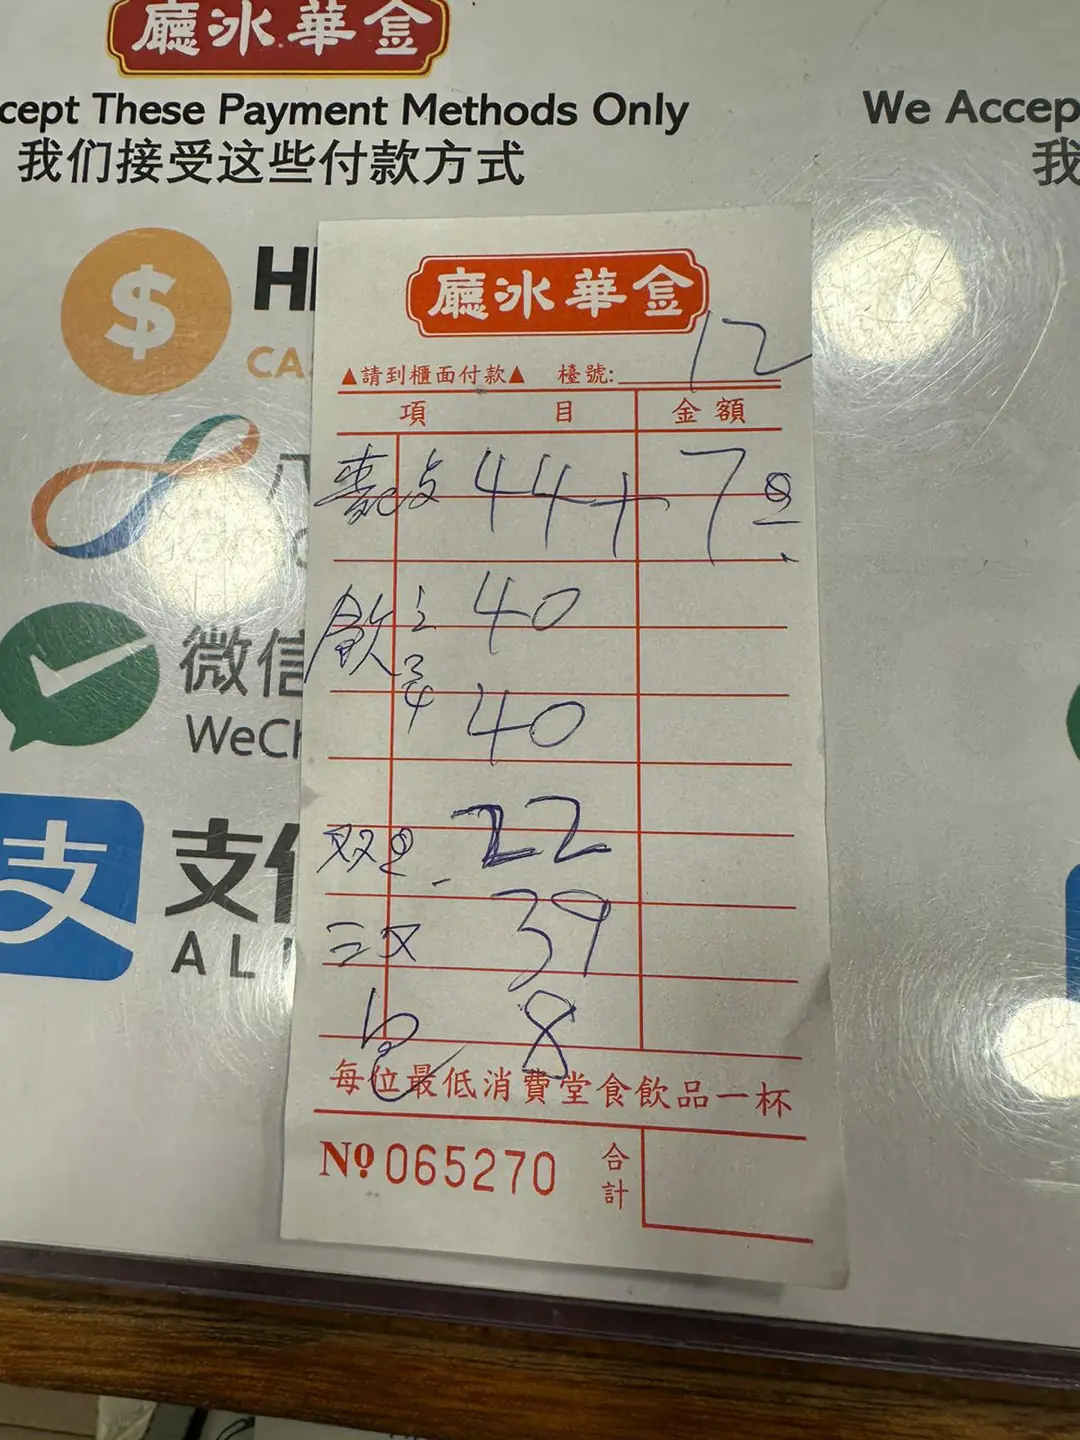 廳冰華金
cept These Payment Methods Only
We Accep
我们接受这些付款方式
我
$
CA
廳冰華金
▲請到櫃面付款▲ 檯號: 12
項 目 金額
44+7
飲 40
微信
40
WeCh
支 支付
双 22
ALI
39
8
每位最低消費堂食飲品一杯
No 065270 合計